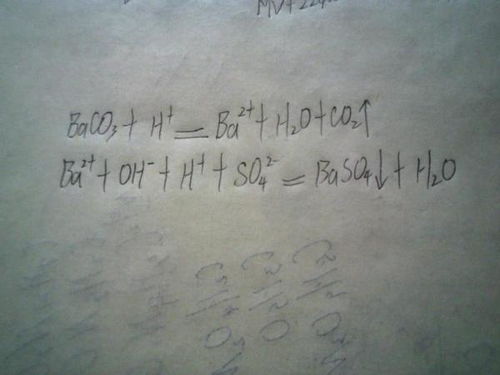 BaCO₃ + H⁺ = Ba²⁺ + H₂O + CO₂↑
Ba²⁺ + OH⁻ + H⁺ + SO₄²⁻ = BaSO₄↓ + H₂O